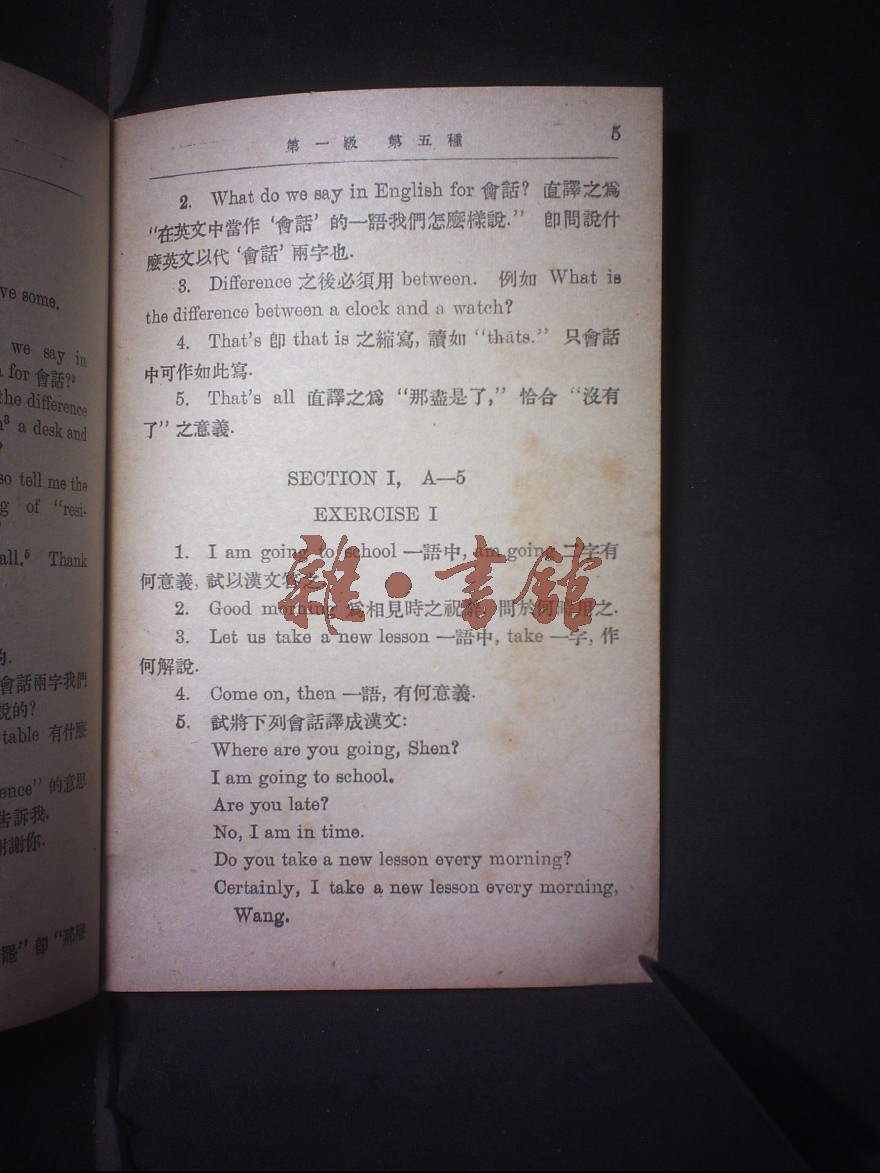 ve some.
we say in
for 會話?²
the difference
a desk and
so tell me the
g of "resi-
all.⁵ Thank
會話兩字我們
說的?
table 有什麼
ence" 的意思
告訴我.
謝你.
罷" 卽 "那麼
第一級 第五種 5
2. What do we say in English for 會話? 直譯之爲
"在英文中當作 '會話' 的一語我們怎麼樣說." 卽問說什
麼英文以代 '會話' 兩字也.
3. Difference 之後必須用 between. 例如 What is
the difference between a clock and a watch?
4. That's 卽 that is 之縮寫, 讀如 "thăts." 只會話
中可作如此寫.
5. That's all 直譯之爲 "那盡是了," 恰合 "沒有
了" 之意義.
SECTION I, A—5
EXERCISE I
1. I am going to school 一語中, am going 二字有
何意義, 試以漢文答之.
2. Good morning 爲相見時之祝辭, 問於何時用之.
3. Let us take a new lesson 一語中, take 一字, 作
何解說.
4. Come on, then 一語, 有何意義.
5. 試將下列會話譯成漢文:
Where are you going, Shen?
I am going to school.
Are you late?
No, I am in time.
Do you take a new lesson every morning?
Certainly, I take a new lesson every morning,
Wang.
雜·書館